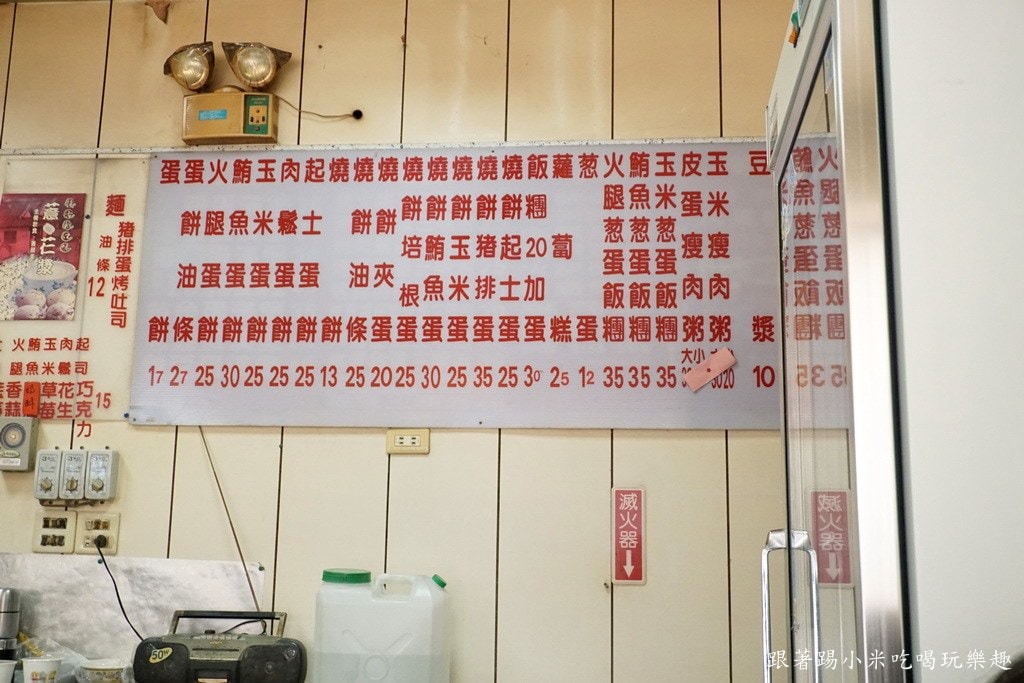 蛋餅 17
蛋餅油條 27
火腿蛋餅 25
鮪魚蛋餅 30
玉米蛋餅 25
肉鬆蛋餅 25
起士蛋餅 25
燒餅 13
燒餅油條 25
燒餅夾蛋 20
燒餅培根蛋 25
燒餅鮪魚蛋 30
燒餅玉米蛋 25
燒餅豬排蛋 35
燒餅起士蛋 25
飯糰20加蛋 30
蘿蔔糕 25
葱蛋 12
火腿葱蛋飯糰 35
鮪魚葱蛋飯糰 35
玉米葱蛋飯糰 35
皮蛋瘦肉粥 大小
玉米瘦肉粥 20
豆漿 10
豬排蛋烤吐司
麵
油條 12
起司
肉鬆
玉米
鮪魚
火
巧克力
花生
草莓
香蒜
15
滅火器
50W
跟著踢小米吃喝玩樂趣